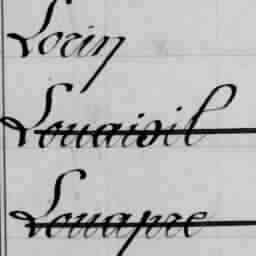 Lorin
Louaisil
Louapre